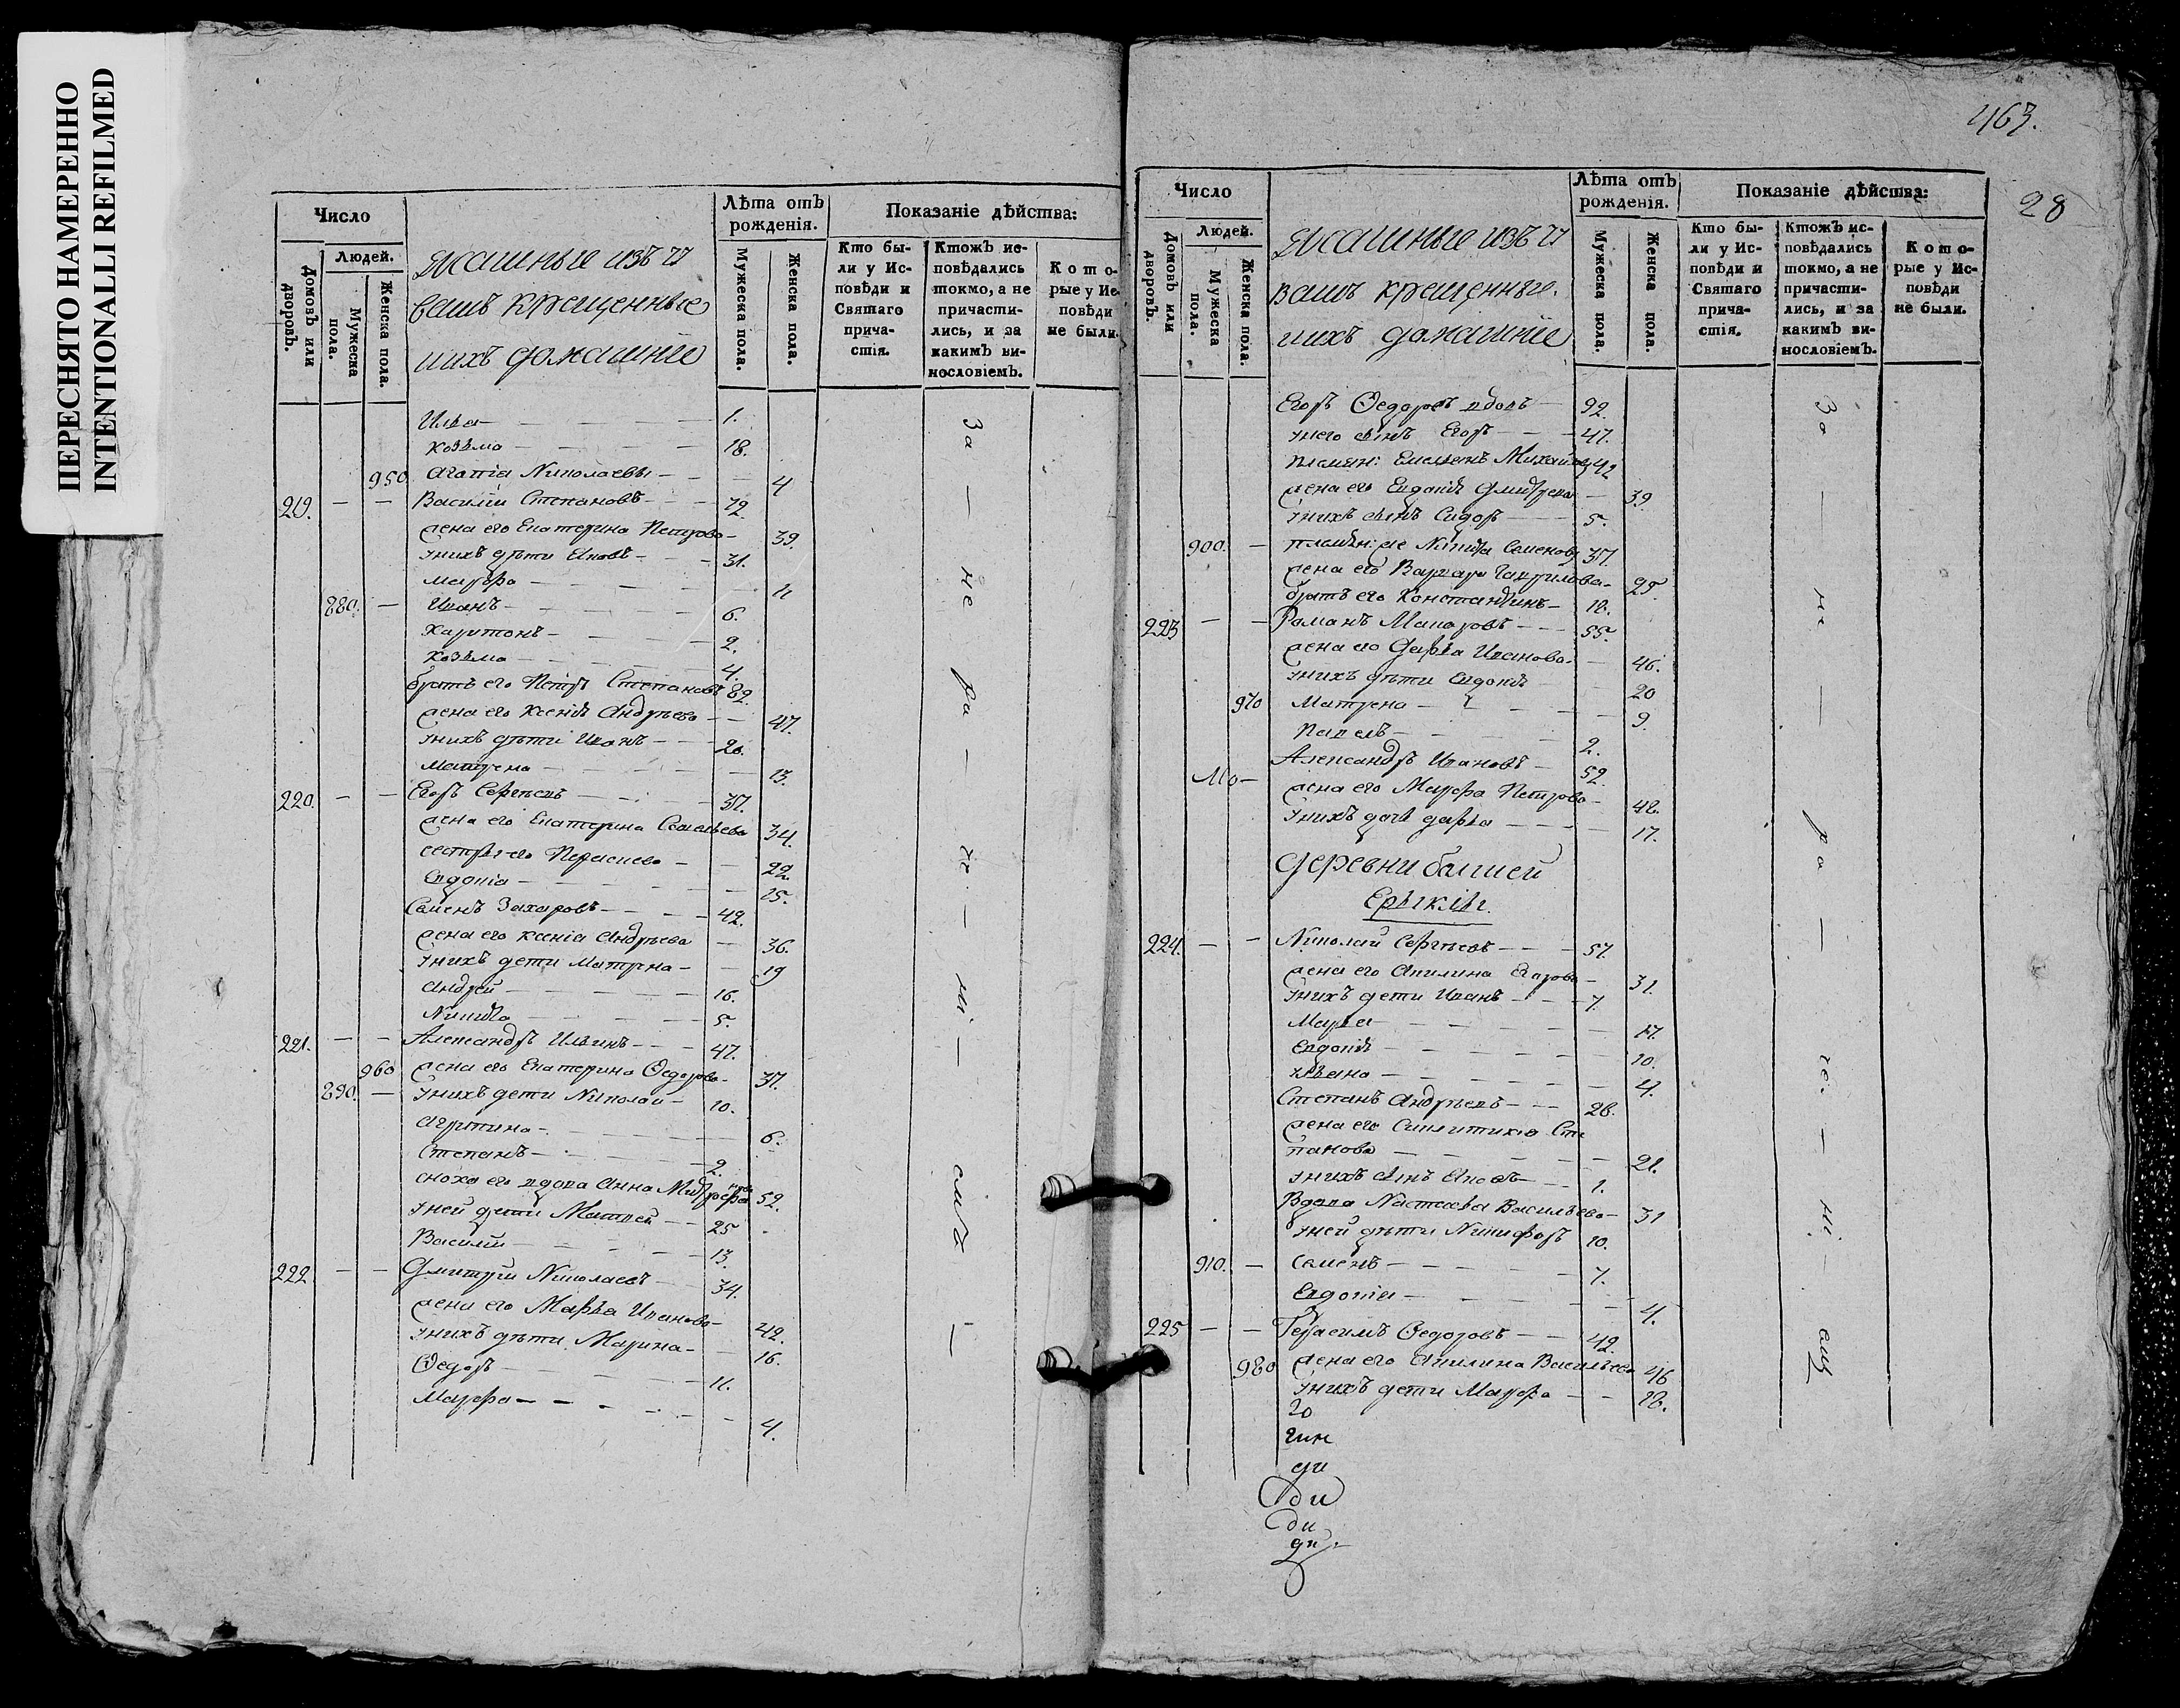 ПЕРЕСНЯТО НАМЕРЕННО
INTENTIONALLI REFILMED
Число
Людей.
Домовъ или дворовъ.
Мужеска пола.
Женска пола.
Ясашные изъ чу
вашъ крещенные
ихъ домашніе
Лѣта отъ рожденія.
Мужеска пола.
Женска пола.
Показаніе дѣйства:
Кто бы-
ли у Ис-
повѣди и
Святаго
прича-
стія.
Ктожъ ис-
повѣдались
токмо, а не
причасти-
лись, и за
какимъ ви-
нословіемъ.
Кото-
рые у Ис-
повѣди
не были.
Илья 1.
Козьма 18.
950 Агапіа Николаевы 4
219. Василій Степановъ 72
жена его Екатерина Петрова 39.
у нихъ дѣти Яковъ 31.
Марфа 11
880. Иванъ 6.
Харитонъ 2.
Козьма 4.
братъ его Петръ Степановъ 82
жена его Ксенія Андреева 47.
у нихъ дѣти Иванъ 20.
Матрена 13.
220. Егоръ Сергѣевъ 37.
жена его Екатерина Савельева 34.
сестры его Парасковья 22.
Евдокіа 15.
Семенъ Захаровъ 42.
жена его Ксеніа Андреева 36.
у нихъ дети Матрена 19
Андрей 16.
Никита 5.
221. Александръ Ильинъ 47.
960 жена его Екатерина Ѳедорова 37.
890. у нихъ дети Николай 10.
Агрипина 6.
Степанъ 2.
сноха его вдова Анна 52.
у ней дети Матвей 25
Василій 13.
222. Дмитрій Николаевъ 34.
жена его Марья Иванова 42.
у нихъ дѣти Марина 16.
Ѳедоръ 11.
Марфа 4.
За — не — ра — че — ні — емъ —
463.
28
Число
Людей.
Домовъ или дворовъ.
Мужеска пола.
Женска пола.
Ясашные изъ чу
вашъ крещенные.
ихъ домашніе
Лѣта отъ рожденія.
Мужеска пола.
Женска пола.
Показаніе дѣйства:
Кто бы-
ли у Ис-
повѣди и
Святаго
прича-
стія.
Ктожъ ис-
повѣдались
токмо, а не
причасти-
лись, и за
какимъ ви-
нословіемъ.
Кото-
рые у Ис-
повѣди
не были.
Егоръ Ѳедоровъ вдовъ 92.
у него сынъ Егоръ 47.
племян: Емельянъ Михайлов 42
жена его Евдокія Дмитрева 39
у нихъ сынъ Сидоръ 5.
900. племян: же Никита Семенов 37.
жена его Варвара Гаврилова 25.
братъ его Константинъ 18.
223 Романъ Макаровъ 55.
жена его Дарья Иванова 46.
у нихъ дѣти Евдокія 20
970 Матрена 9.
Павелъ 2.
Александръ Ивановъ 52.
жена его Марфа Петрова 48.
у нихъ дочь Дарья 17.
Деревни болшей
Ерыклы.
224. Николай Сергѣевъ 57.
жена его Акилина Егорова 31.
у нихъ дети Иванъ 7.
Марья 14.
Евдокія 10.
Ульяна 4.
Степанъ Андреевъ 28.
жена его Синклитикіа Сте
панова 21.
у нихъ сынъ Яковъ 1.
Вдова Настасья Васильева 31
у ней дѣти Никифоръ 10.
910. Семенъ 7.
Евдокіа 4.
225 Герасимъ Ѳедоровъ 42.
980 жена его Акилина Васильева 46
у нихъ дети Марфа 18.
За — не — ра — че — ні —